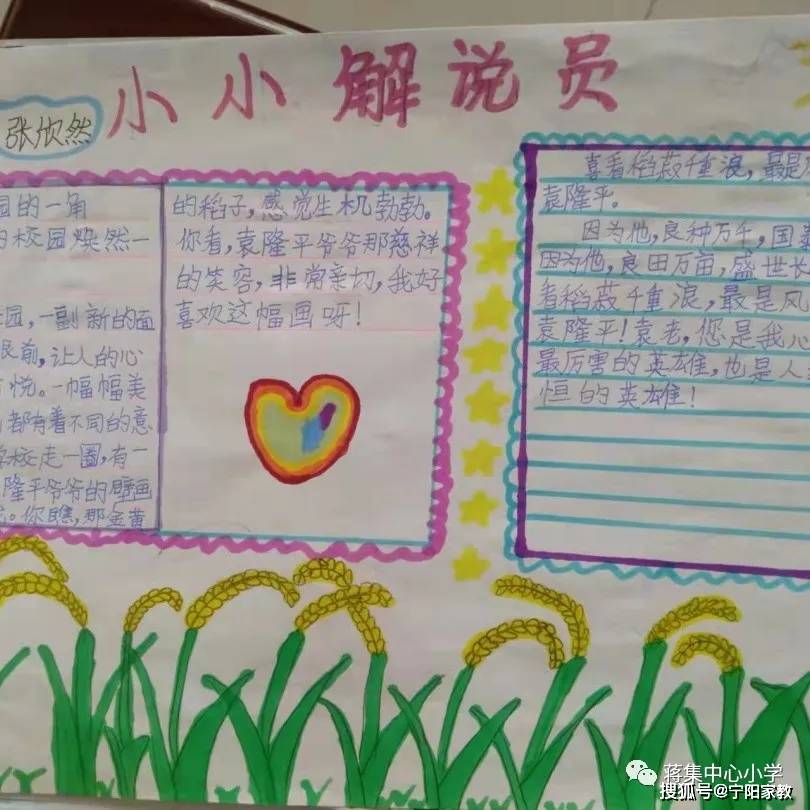 小小解说员
张欣然
园的一角
校园焕然一
园，一副新的面
眼前，让人的心
悦。一幅幅美
都有着不同的意
校走一圈，有一
隆平爷爷的壁画
。你瞧，那金黄
的稻子，感觉生机勃勃。
你看，袁隆平爷爷那慈祥
的笑容，非常亲切，我好
喜欢这幅画呀！
喜看稻菽千重浪，最是
袁隆平。
因为他，良种万千，国
因为他，良田万亩，盛世长
看稻菽千重浪，最是风
袁隆平！袁老，您是我心
最厉害的英雄，也是人
恒的英雄！
蒋集中心小学
搜狐号@宁阳家教